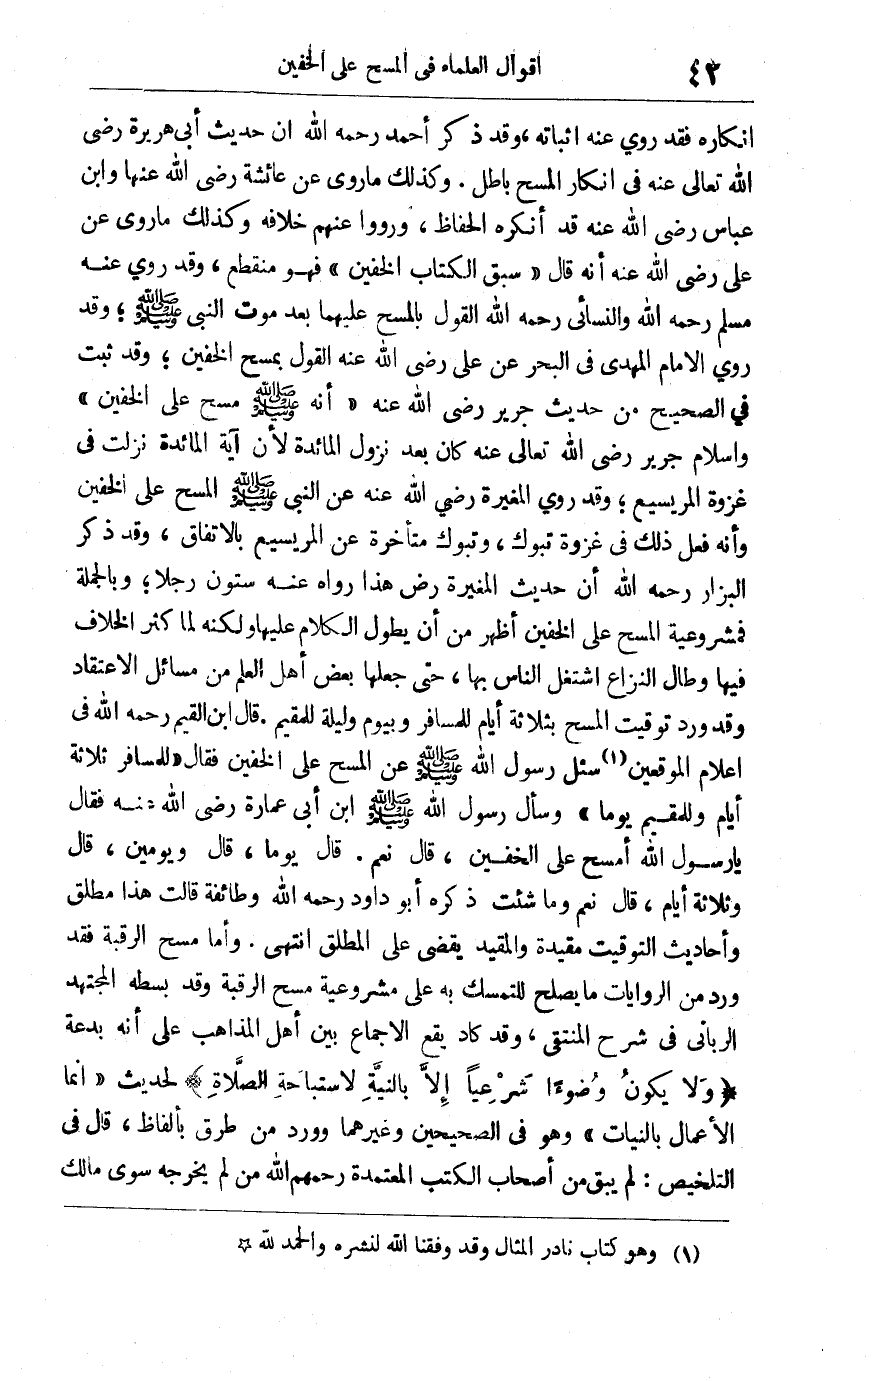 ٤٣
أقوال العلماء فى المسح على الخفين
انكاره فقد روي عنه اثباته ، وقد ذكر أحمد رحمه الله ان حديث أبى هريرة رضى
الله تعالى عنه فى انكار المسح باطل . وكذلك ماروى عن عائشة رضى الله عنها وابن
عباس رضى الله عنه قد أنكره الحفاظ ، ورووا عنهم خلافه وكذلك ماروى عن
على رضى الله عنه أنه قال « سبق الكتاب الخفين » فهو منقطع ، وقد روي عنه
مسلم رحمه الله والنسائى رحمه الله القول بالمسح عليهما بعد موت النبى ﷺ ؛ وقد
روي الامام المهدى فى البحر عن على رضى الله عنه القول بمسح الخفين ؛ وقد ثبت
في الصحيح من حديث جرير رضى الله عنه « أنه ﷺ مسح على الخفين »
واسلام جرير رضى الله تعالى عنه كان بعد نزول المائدة لأن آية المائدة نزلت فى
غزوة المريسيع ؛ وقد روي المغيرة رضي الله عنه عن النبي ﷺ المسح على الخفين
وأنه فعل ذلك فى غزوة تبوك ، وتبوك متأخرة عن المريسيع بالاتفاق ، وقد ذكر
البزار رحمه الله أن حديث المغيرة رض هذا رواه عنه ستون رجلا ؛ وبالجملة
فمشروعية المسح على الخفين أظهر من أن يطول الكلام عليها ولكنه لما كثر الخلاف
فيها وطال النزاع اشتغل الناس بها ، حتى جعلها بعض أهل العلم من مسائل الاعتقاد
وقد ورد توقيت المسح بثلاثة أيام للمسافر وبيوم وليلة للمقيم . قال ابن القيم رحمه الله فى
اعلام الموقعين (١) سئل رسول الله ﷺ عن المسح على الخفين فقال « للمسافر ثلاثة
أيام وللمقيم يوما » وسأل رسول الله ﷺ ابن أبى عمارة رضى الله عنه فقال
يارسول الله أمسح على الخفين ، قال نعم . قال يوما ، قال ويومين ، قال
وثلاثة أيام ، قال نعم وما شئت ذكره أبو داود رحمه الله وطائفة قالت هذا مطلق
وأحاديث التوقيت مقيدة والمقيد يقضى على المطلق انتهى . وأما مسح الرقبة فقد
ورد من الروايات مايصلح للتمسك به على مشروعية مسح الرقبة وقد بسطه المجتهد
الربانى فى شرح المنتقى ، وقد كاد يقع الاجماع بين أهل المذاهب على أنه بدعة
﴿ وَلا يكونُ وُضوءًا شَرْعِياً إِلاَّ بالنيَّةِ لاستباحَةِ الصَّلاةِ ﴾ لحديث « انما
الأعمال بالنيات » وهو فى الصحيحين وغيرهما وورد من طرق بألفاظ ، قال فى
التلخيص : لم يبق من أصحاب الكتب المعتمدة رحمهم الله من لم يخرجه سوى مالك
(١) وهو كتاب نادر المثال وقد وفقنا الله لنشره والحمد لله ☆